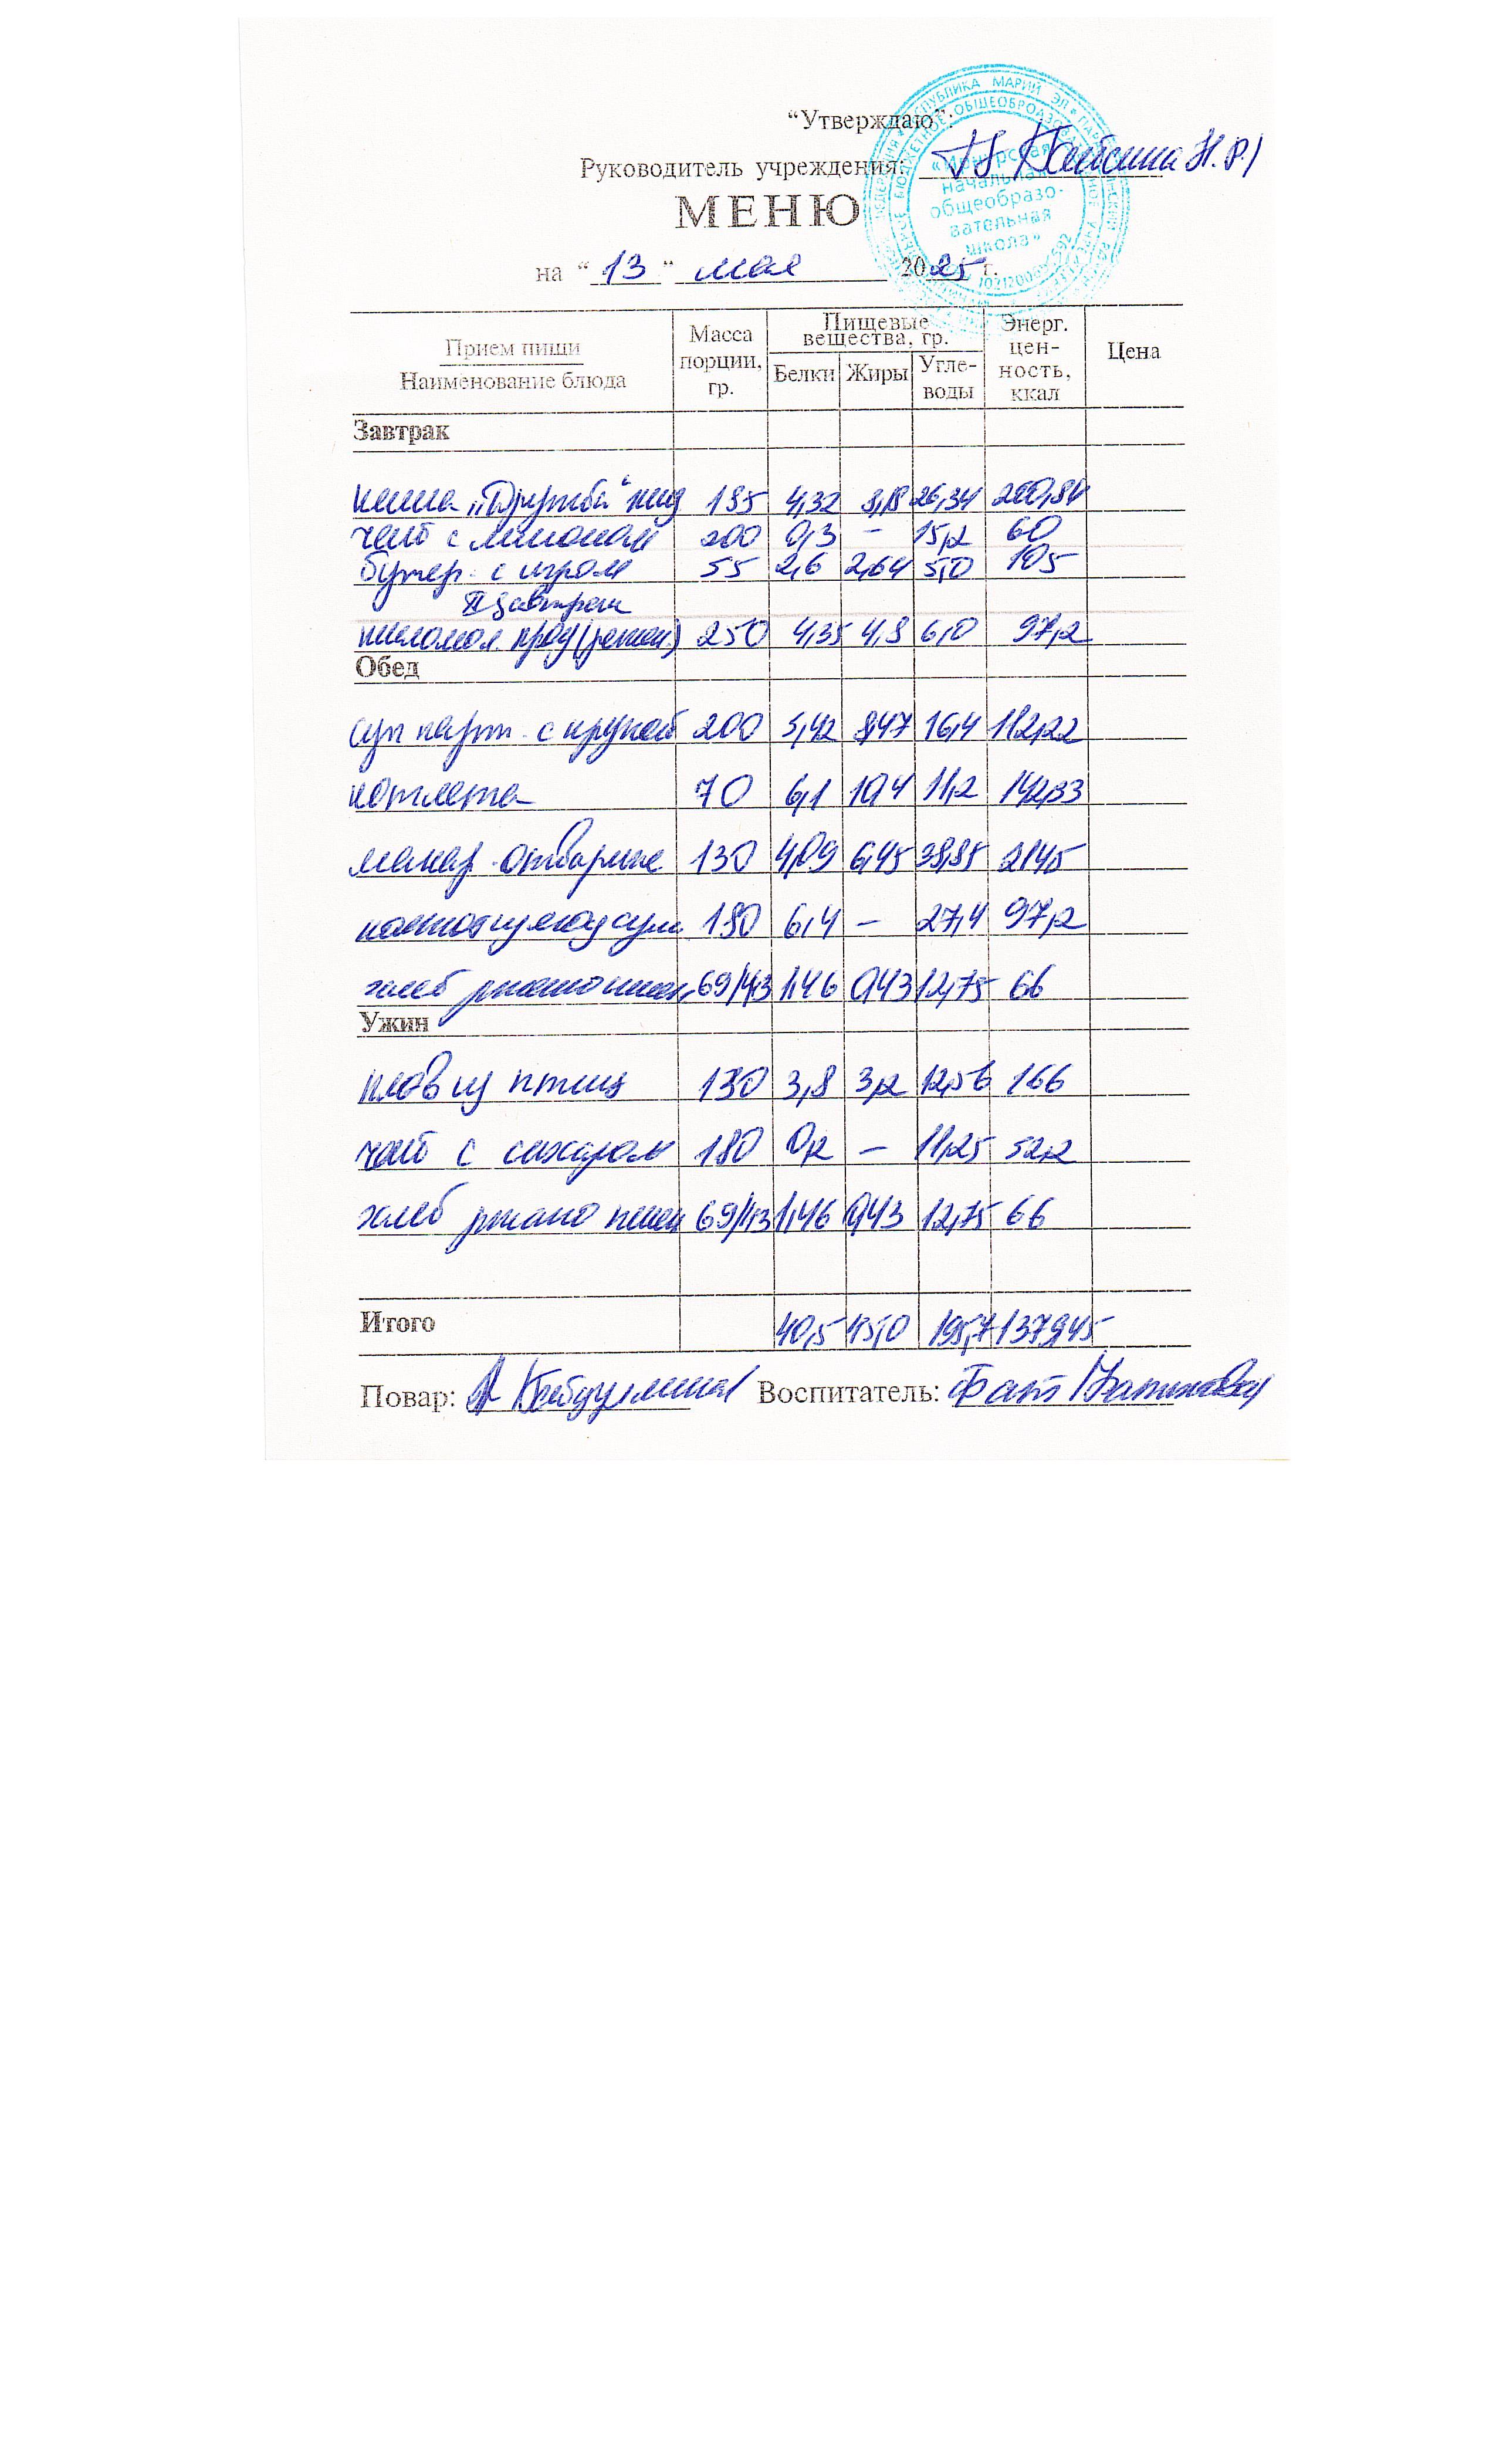 “Утверждаю”:
Руководитель учреждения:
МЕНЮ
на “13” мая 2025 г.
«
начальная
общеобразо-
вательная
школа»
Прием пищи
Наименование блюда
Масса порции, гр.
Пищевые вещества, гр.
Белки Жиры Угле-воды
Энерг. цен-ность, ккал
Цена
Завтрак
каша „Дружба“ жид 195 4,32 8,18 26,34 200,84
чай с лимоном 200 0,3 – 15,2 60
бутер. с сыром 55 2,6 2,64 5,0 105
II завтрак
кисломол. прод 250 4,35 4,8 6,0 97,2
Обед
суп карт. с крупой 200 5,42 8,47 16,4 112,22
котлета 70 6,1 10,4 11,2 142,33
макар. отварные 130 4,09 6,45 38,85 214,5
180 6,4 – 27,4 97,2
хлеб 69/4,3 1,46 0,43 12,75 66
Ужин
плов из птиц 130 3,8 3,2 12,56 166
чай с сахаром 180 0,2 – 11,25 52,2
хлеб ржано пшен 69/4,3 1,46 0,43 12,75 66
Итого 40,5 45,0 195,7 1379,45
Повар: Воспитатель: